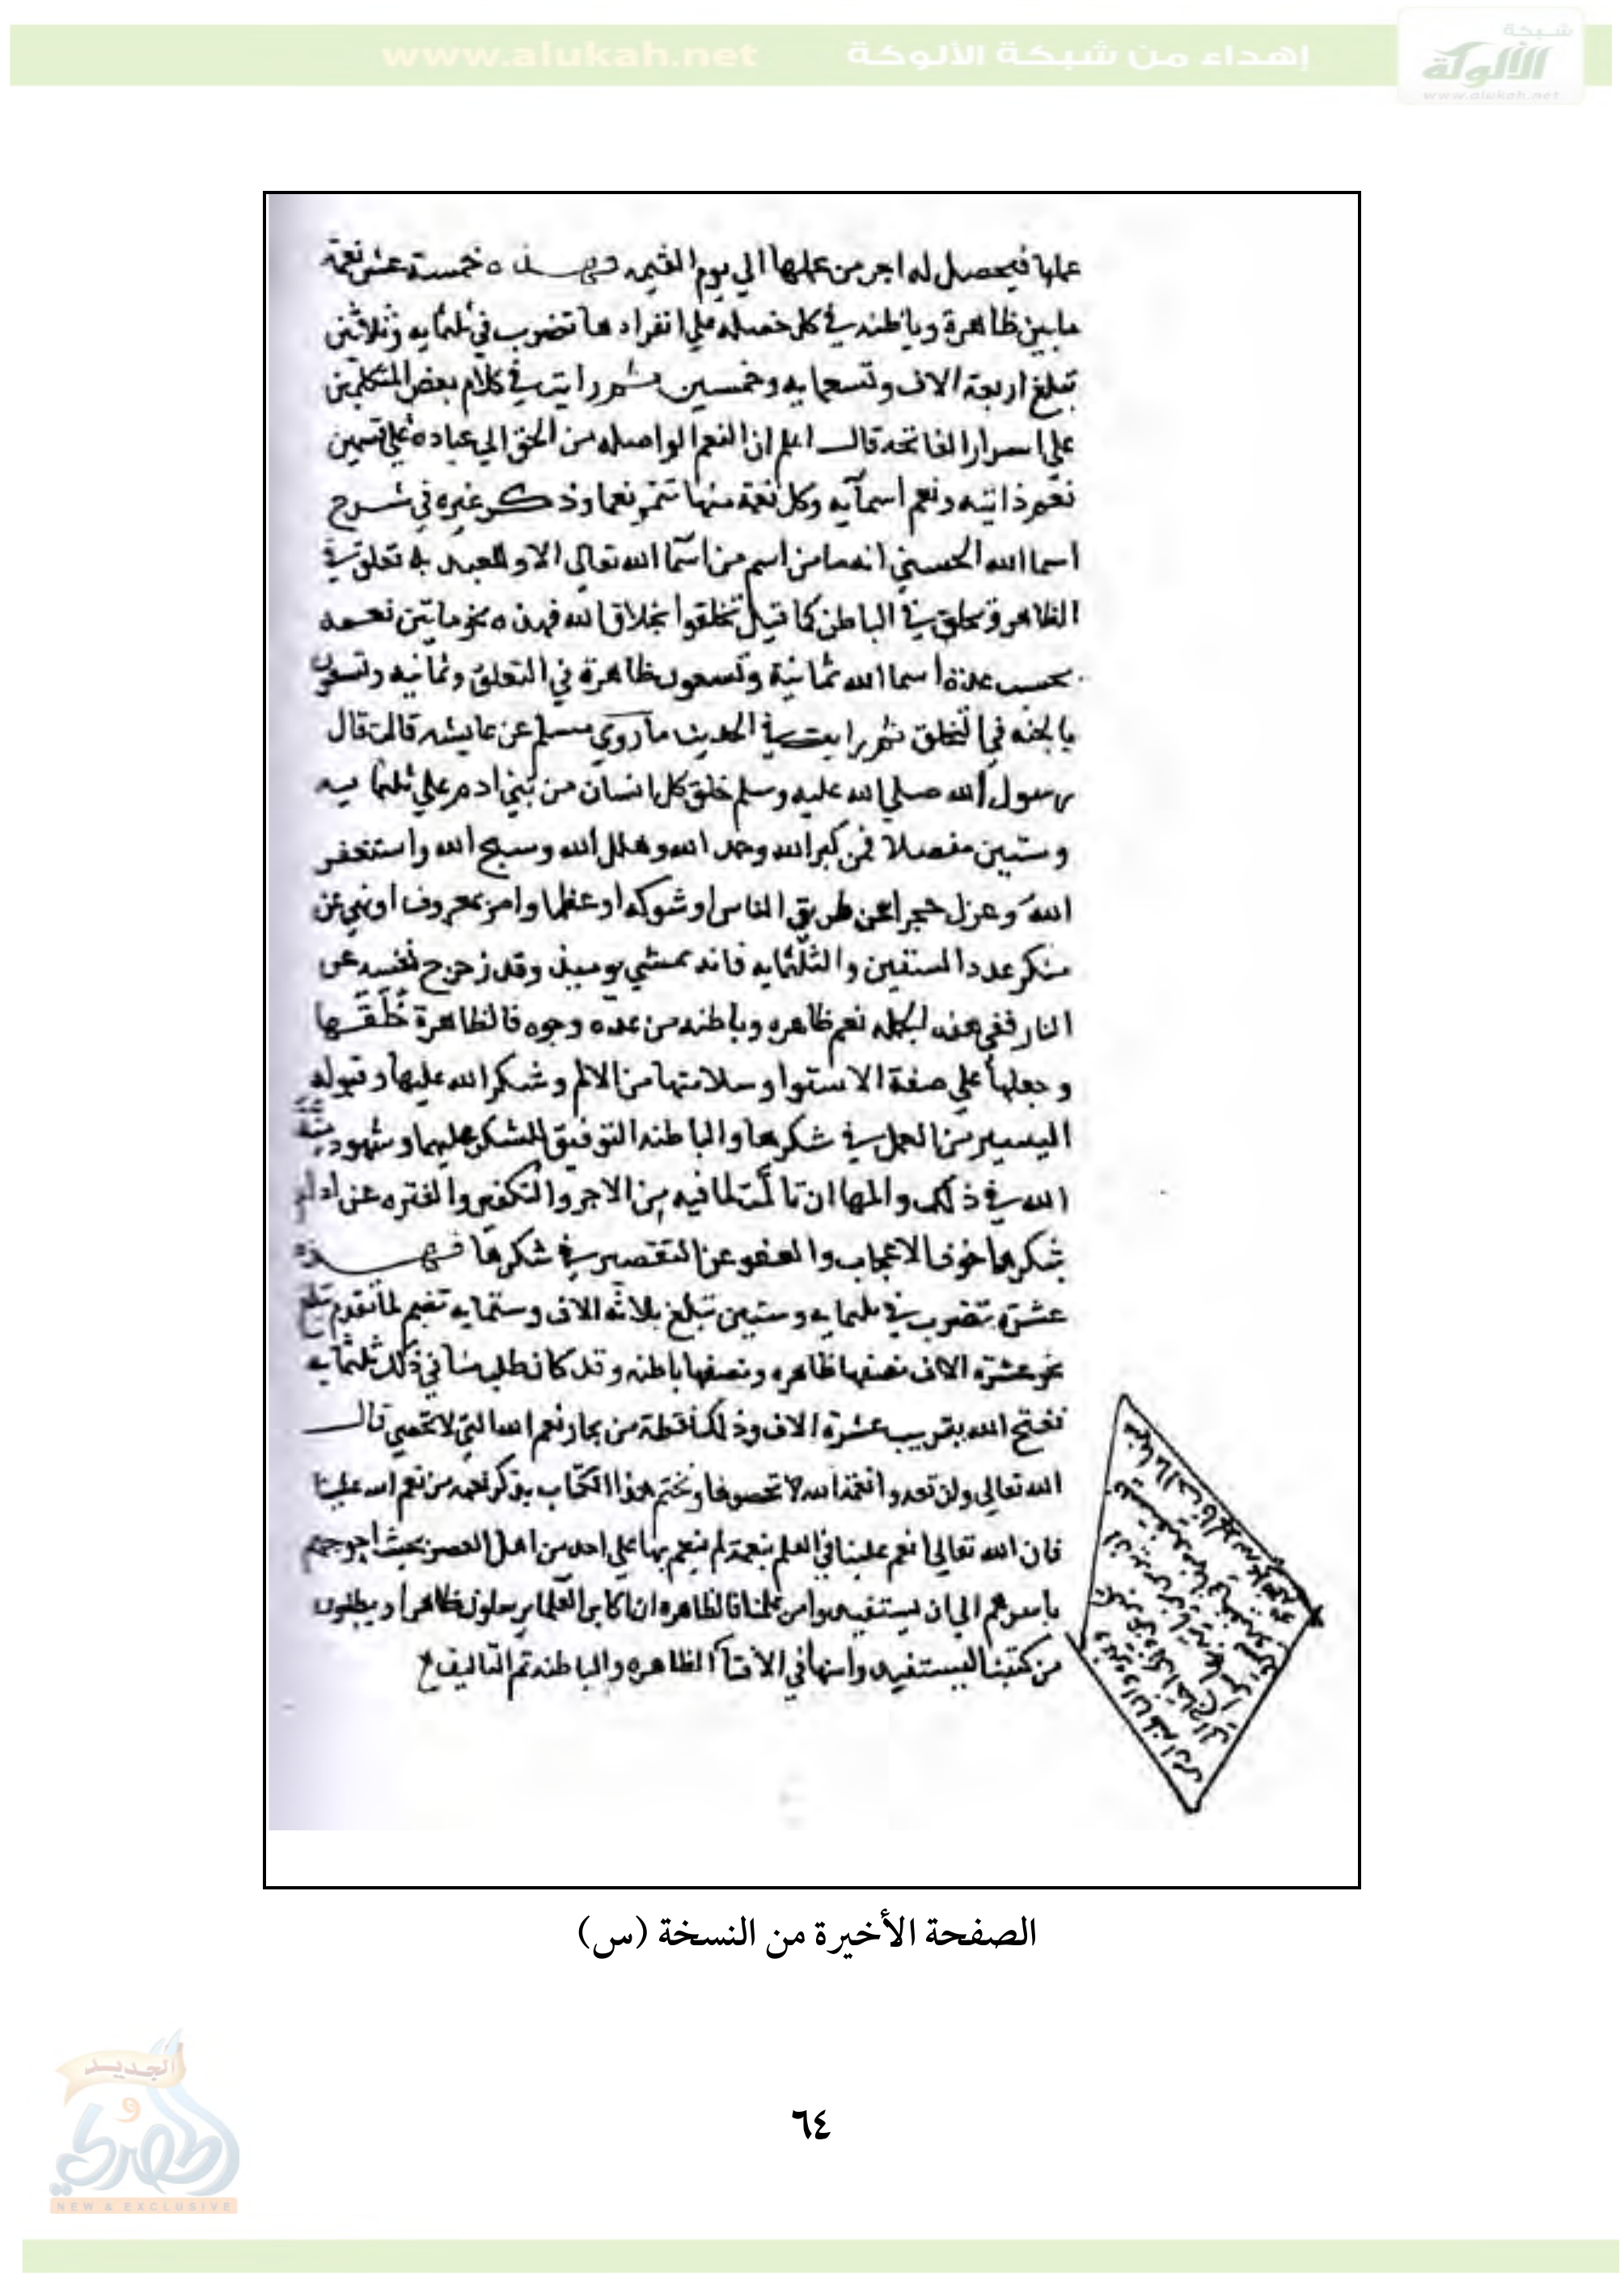 شبكة
الألوكة
www.alukah.net
إهداء من شبكة الألوكة www.alukah.net
عملها فيحصل له اجر من عملها الي يوم القيمه فهذه خمسة عشر نعمة
ما بين ظاهرة وباطنه في كل خصله علي انفرادها تضرب في ثلثمايه وثلاثين
تبلغ اربعة الاف وتسعمايه وخمسين ثم رايت في كلام بعض المتكلمين
علي اسرار الفاتحه قال اعلم ان النعم الواصله من الحق الي عباده علي قسمين
نعم ذاتيه ونعم اسمآيه وكل نعمة منها تثمر نعما وذكر غيره في شرح
اسما الله الحسني انه ما من اسم من اسما الله تعالي الا وللعبد به تعلق في
الظاهر وتخلق في الباطن كما قيل تخلقوا بخلاق الله فهذه نحو مايتين نعمه
بحسب عدة اسما الله ثمانية وتسعون ظاهرة في التعلق وثمانيه وتسعون
باطنه في التخلق ثم رايت في الحديث ما روي مسلم عن عايشه قالت قال
رسول الله صلي الله عليه وسلم خلق كل انسان من بني ادم علي ثلثمايه
وستين مفصلا فمن كبر الله وحمد الله وهلل الله وسبح الله واستغفر
الله وعزل حجرا عن طريق الناس او شوكه او عظما وامر بمعروف او نهي عن
منكر عدد الستين والثلثمايه فانه يمشي يوميذ وقد زحزح نفسه عن
النار ففي هذه الجمله نعم ظاهره وباطنه من عدة وجوه فالظاهرة خلقها
وجعلها علي صفة الاستوا وسلامتها من الالم وشكر الله عليها وقبوله
اليسير من العمل في شكرها والباطنه التوفيق للشكر عليها وشهود منة
الله في ذلك والمها ان تالمت لما فيه من الاجر والتكفير والفتره عن
شكرها خوف الاعجاب والعفو عن التقصير في شكرها فهذه
عشرة تضرب في ثلثمايه وستين تبلغ ثلاثة الاف وستمايه تضم لما تقدم تبلغ
نحو عشرة الاف نصفها ظاهره ونصفها باطنه وقد كان طلب منا في ذلك ثلثمايه
ففتح الله بقريب عشرة الاف وذلك نقطة من بحار نعم الله التي لا تحصي قال
الله تعالي وان تعدوا نعمة الله لا تحصوها ونختم هذا الكتاب بذكر نعمه من نعم الله علينا
فان الله تعالي انعم علينا في العلم بنعمة لم ينعم بها علي احد من اهل العصر بحيث احوجهم
باسرهم الي ان يستفيدوا من علمنا فالظاهره ان اكابر العلما يرسلون ظاهرا ويطلبون
من كتبنا ليستفيدوا منها في الافتا الظاهره والباطنه تم التاليف
الصفحة الأخيرة من النسخة (س)
٦٤
الجديد
و
الحصري
NEW & EXCLUSIVE